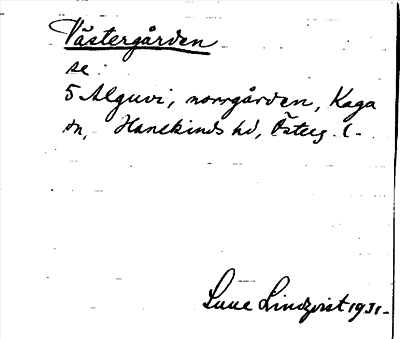 Västergården
se:
5 Alguvi, norrgården, Kaga
sn, Hanekinds hd, Österg. l.
Sune Lindqvist 1931